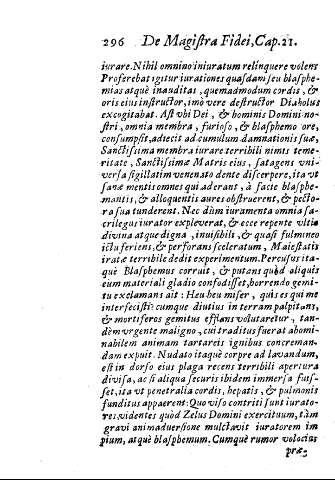 296 De Magistra Fidei, Cap. 21.
iurare. Nihil omnino iniuratum relinquere volens
Proferebat igitur iurationes quasdam seu blasphe-
mias atquè inauditas, quemadmodum cordis, &
oris eius instructor, imò vere destructor Diabolus
excogitabat. Ast vbi Dei, & hominis Domini no-
stri, omnia membra, furioso, & blasphemo ore,
consumpsit, adiecit ad cumulum damnationis suæ,
Sanctissima membra iurare terribili nimis teme-
ritate, Sanctissimæ Matris eius, satagens vni-
versa sigillatim venenato dente discerpere, ita vt
sanæ mentis omnes qui aderant, à facie blasphe-
mantis, & alloquentis aures obstruerent, & pecto-
ra sua tunderent. Nec dùm iuramenta omnia sa-
crilegus iurator expleverat, & ecce repente vltio
divina atque digna, invisibili, & quasi fulmineo
ictu feriens, & perforans sceleratum, Maiestatis
iratæ terribile dedit experimentum. Percussus ita-
què Blasphemus corruit, & putans quòd aliquis
eum materiali gladio confodisset, horrendo gemi-
tu exclamans ait: Heu heu miser, quis es qui me
interfecisti: cumque diutius in terram palpitans,
& mortiferos gemitus efflans volutaretur, tan-
dèm vrgente maligno, cui traditus fuerat abomi-
nabilem animam tartareis ignibus concreman-
dam expuit. Nudato itaquè corpre ad lavandum,
est in dorso eius plaga recens terribili apertura
divisa, ac si aliqua securis ibidem immersa fuis-
set, ita vt penetralia cordis, hepatis, & pulmonis
funditus apparerent: Quo viso contriti sunt iurato-
res; videntes quòd Zelus Domini exercituum, tàm
gravi animadversione mulctavit iuratorem im
pium, atquè blasphemum. Cumquè rumor volocius
præ-